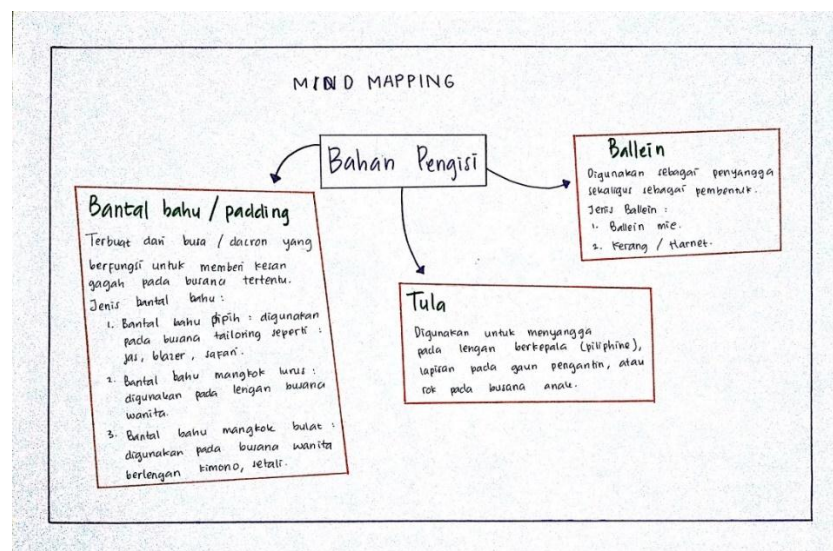 MIND MAPPING
Bahan Pengisi
Bantal bahu / padding
Terbuat dari busa / dacron yang
berfungsi untuk memberi kesan
gagah pada busana tertentu.
Jenis bantal bahu :
1. Bantal bahu pipih : digunakan
pada busana tailoring seperti :
jas, blazer, safari.
2. Bantal bahu mangkok lurus :
digunakan pada lengan busana
wanita.
3. Bantal bahu mangkok bulat :
digunakan pada busana wanita
berlengan kimono, setali.
Tula
Digunakan untuk menyangga
pada lengan berkepala (piliphine),
lapisan pada gaun pengantin, atau
rok pada busana anak.
Ballein
Digunakan sebagai penyangga
sekaligus sebagai pembentuk.
Jenis Ballein :
1. Ballein mie.
2. Kerang / Harnet.